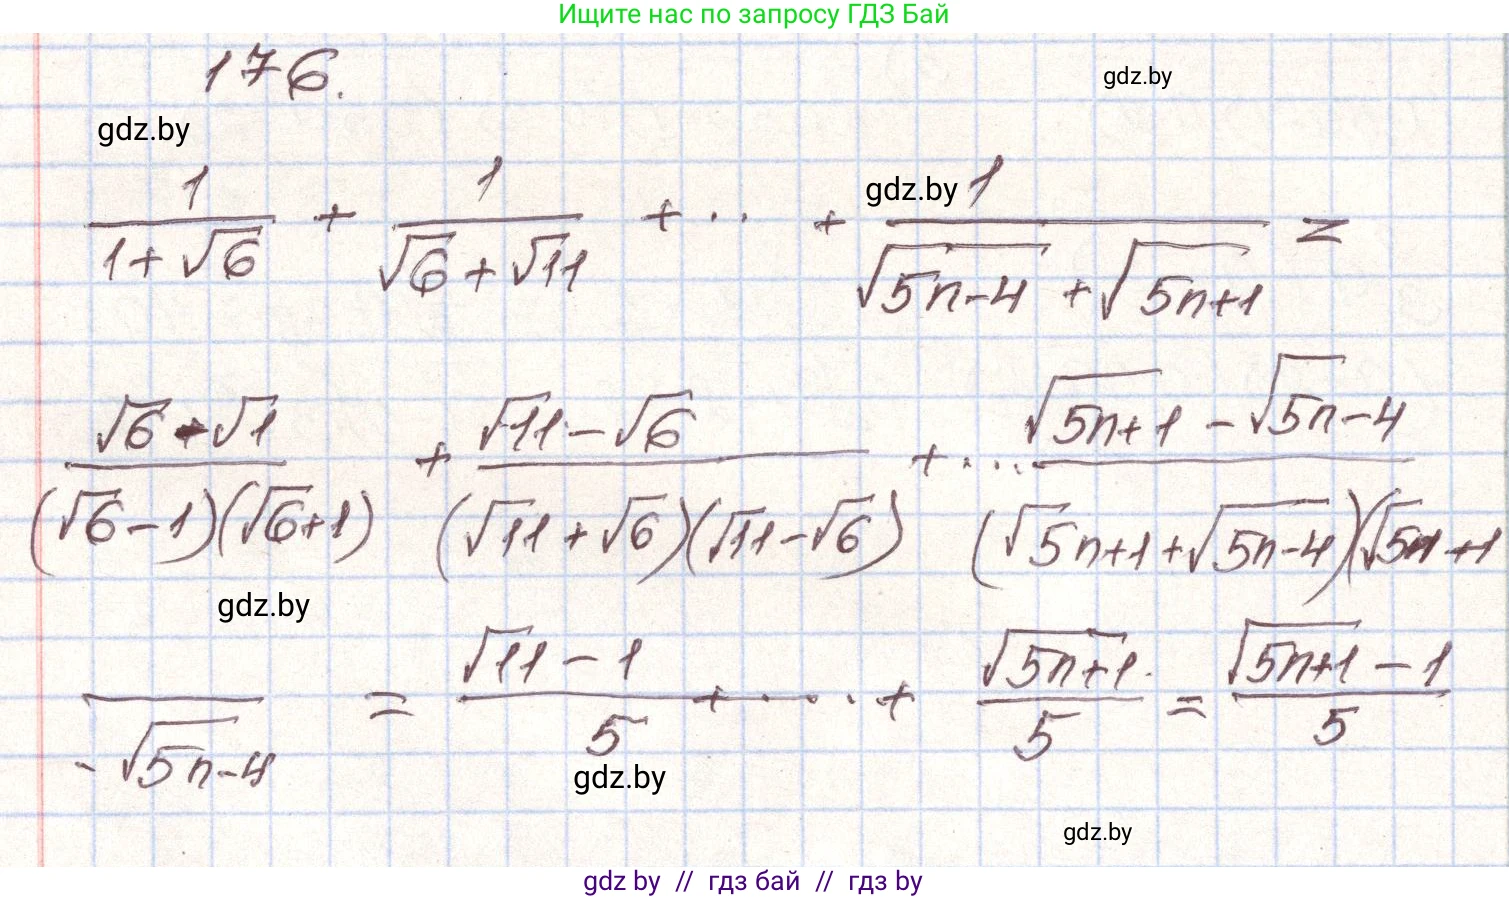 Ищите нас по запросу ГДЗ Бай
176.
gdz.by
gdz.by
gdz.by
1/(1+√6) + 1/(√6+√11) + ... + 1/(√(5n-4) + √(5n+1)) =
(√6-√1)/((√6-1)(√6+1)) + (√11-√6)/((√11+√6)(√11-√6)) + ... (√(5n+1) - √(5n-4))/((√(5n+1)+√(5n-4))(√(5n+1)
gdz.by
-√(5n-4) = (√11-1)/5 + ... + √(5n+1)/5 = (√(5n+1)-1)/5
gdz.by
gdz.by
gdz by // гдз бай // гдз by